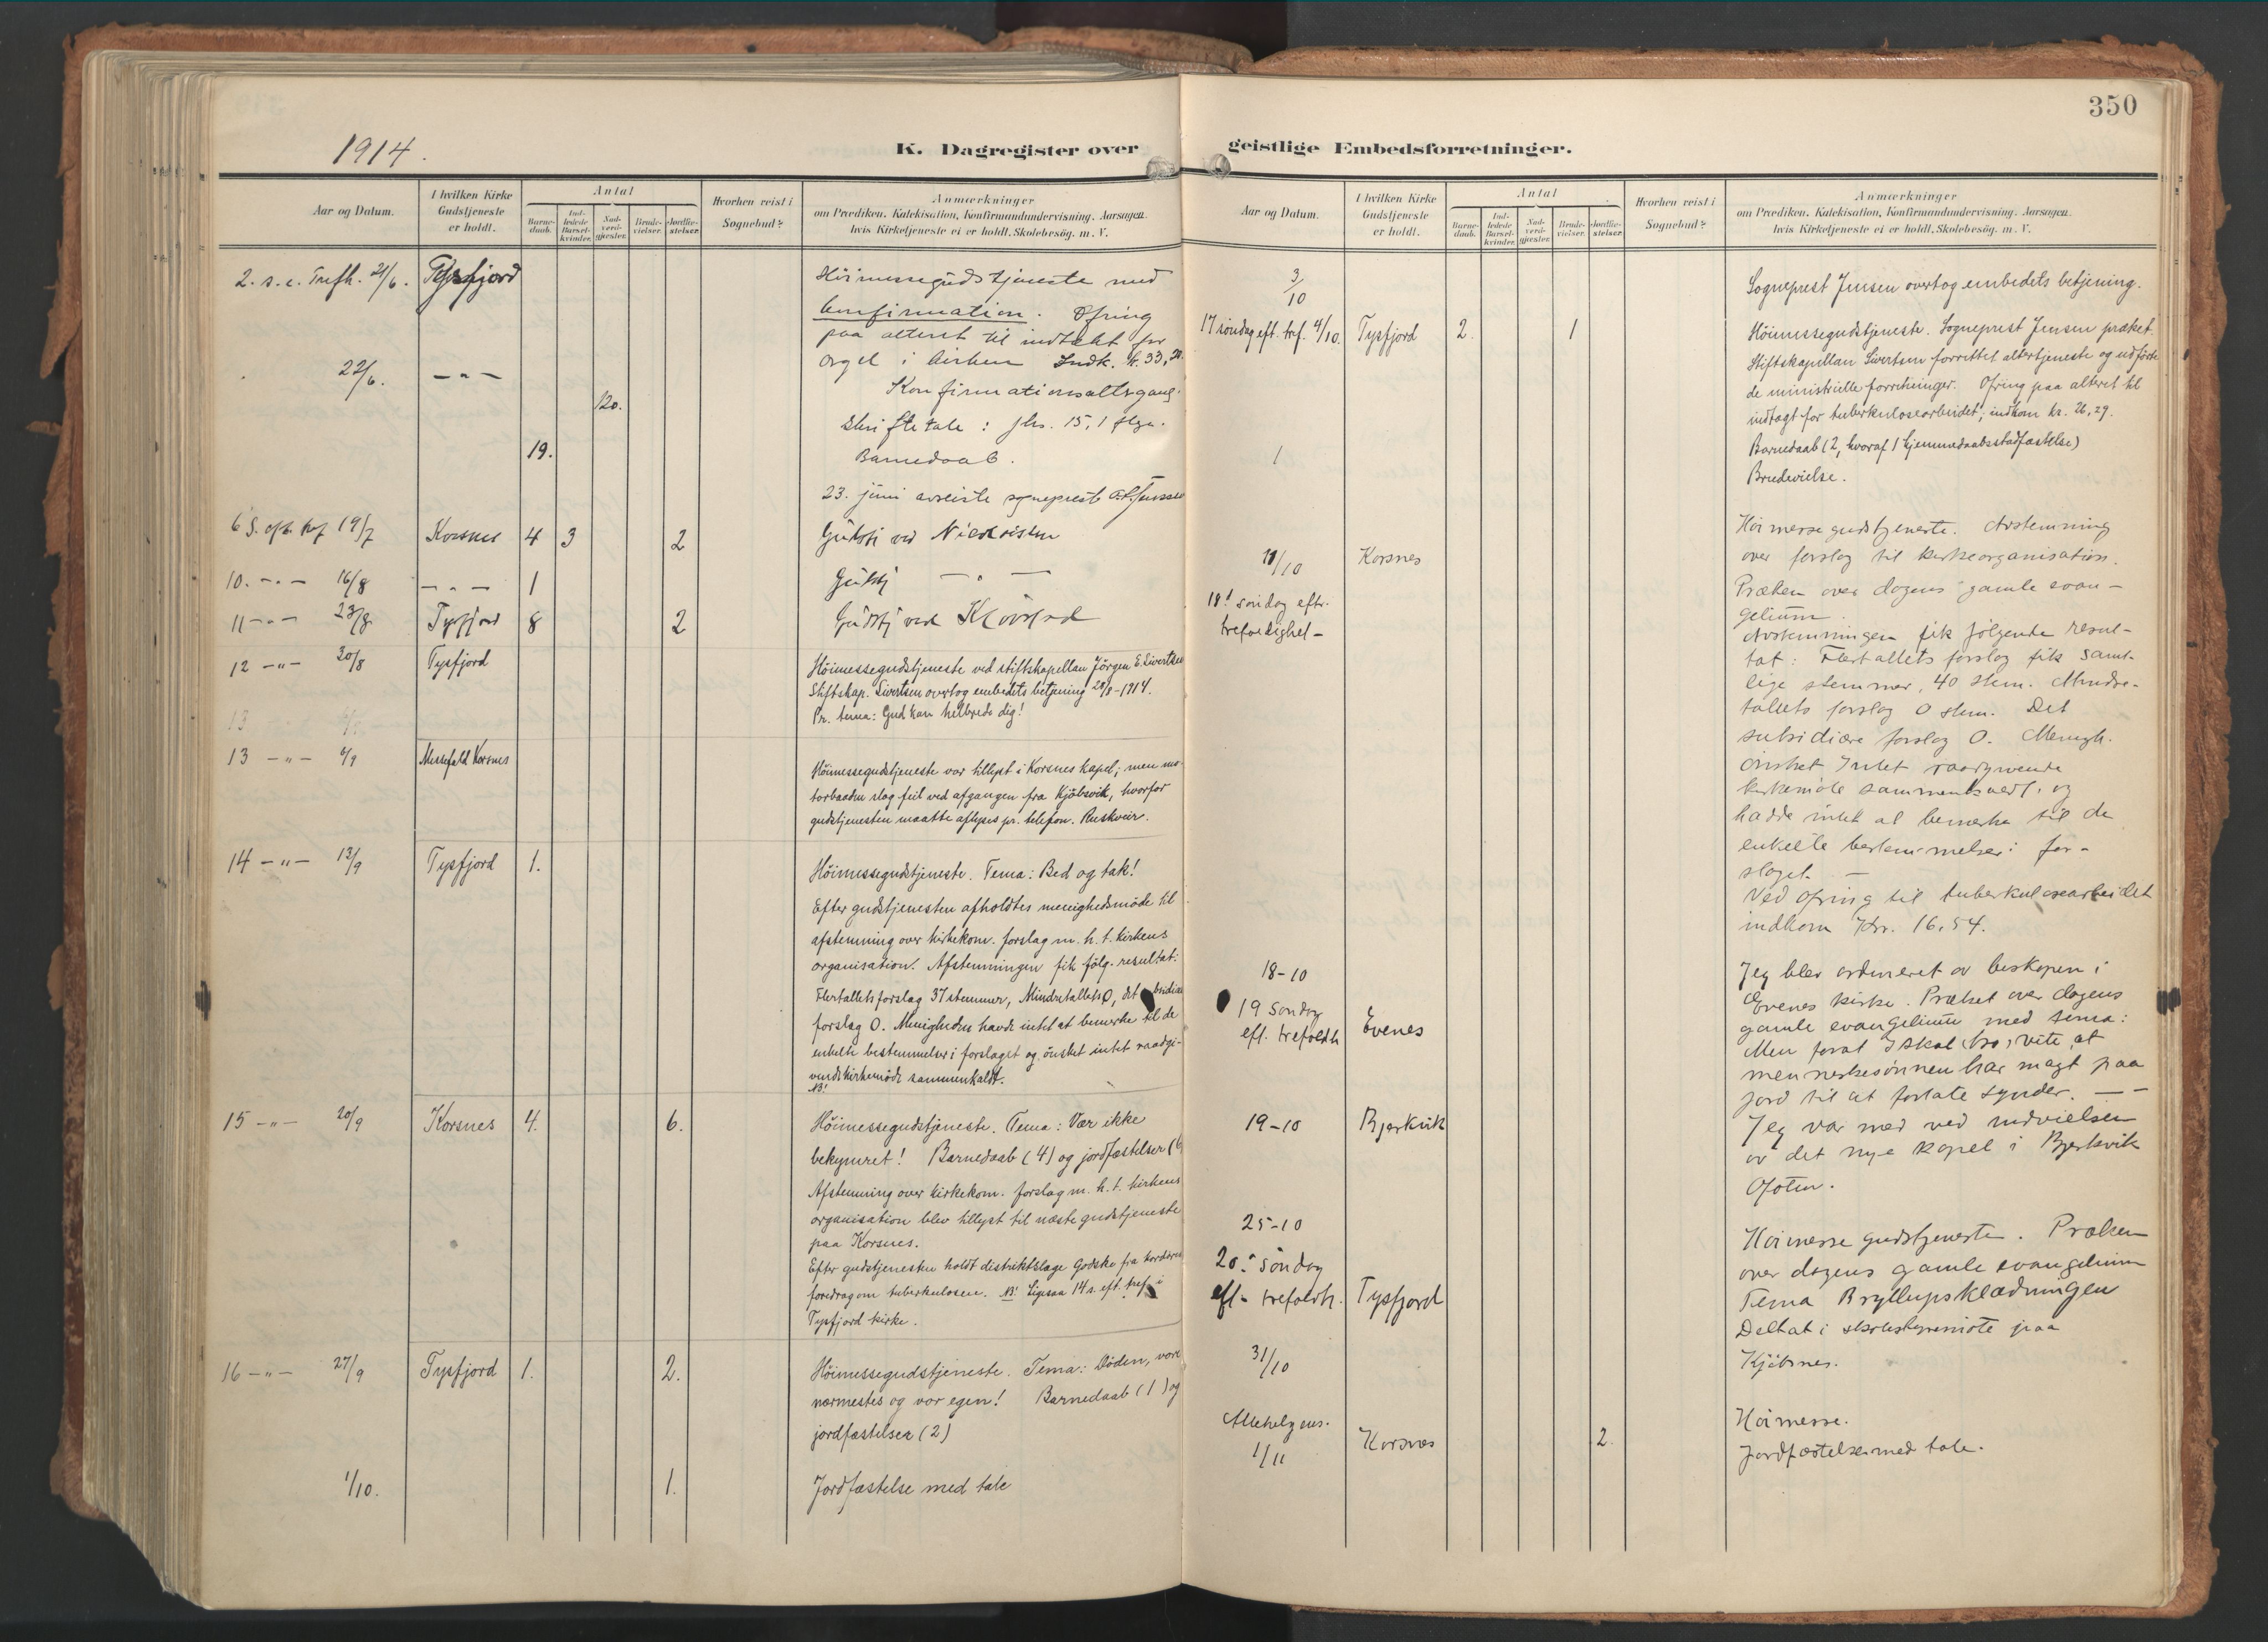 350
1914.
K. Dagregister over
geistlige Embedsforretninger.
Aar og Datum.
I hvilken Kirke Gudstjeneste er holdt.
Antal
Barnedaab.
Indledede Barselkvinder.
Nadverdgjæster.
Brudevielser.
Jordfæstelser.
Hvorhen reist i Sognebud?
Anmærkninger
om Prædiken, Katekisation, Konfirmandundervisning. Aarsagen,
hvis Kirketjeneste ei er holdt, Skolebesøg. m. V.
2. s. e. Trefh. 21/6. Tysfjord
Høimessegudstjeneste med
konfirmation. Ofring
paa alteret til indtekt for
orgel i kirken Indk. kr. 33,20.
22/6. — " —
120.
Konfirmationsaltergang.
Skriftetale: Jhs. 15,1 flg.
19.
Barnedaab.
23. juni avreiste sogneprest Jensen
6 S. eft. tref 19/7 Korsnes 4 3 2
Gudstj ved
10. - " - 16/8 — " — 1
Gudstj — " —
11 - " - 23/8 Tysfjord 8 2
Gudstj ved
12 - " - 30/8 Tysfjord
Høimessegudstjeneste ved stiftskapellan Jørgen E. Sivertsen
Stiftskap. Sivertsen overtog embedets betjening 28/8-1914.
Pr. tema: Gud kan helbrede dig!
13
13 - " - 6/9 Messefald Korsnes
Høimessegudstjeneste var tillyst i Korsnes kapel; men mo-
torbaaden slog feil ved afgangen fra Kjøbsvik, hvorfor
gudstjenesten maatte aflyses pr. telefon. Ruskveir.
14 - " - 13/9 Tysfjord 1.
Høimessegudstjeneste. Tema: Bed og tak!
Efter gudstjenesten afholdtes menighedsmøde til
afstemning over kirkekom. forslag m. h. t. kirkens
organisation. Afstemningen fik følg. resultat:
Flertallets forslag 37 stemmer, Mindretallets 0, det
forslag 0. Menigheden havde intet at bemerke til de
enkelte bestemmelser i forslaget og ønsket intet raadgi-
vende kirkemøde sammenkaldt.
NB!
15 - " - 20/9 Korsnes 4. 6.
Høimessegudstjeneste. Tema: Vær ikke
bekymret! Barnedaab (4) og jordfæstelser (6
Afstemning over kirkekom. forslag m. h. t. kirkens
organisation blev tillyst til næste gudstjeneste
paa Korsnes.
Efter gudstjenesten holdt distriktslæge Godske fra
foredrag om tuberkulosen. NB! Ligesaa 14 s. eft. tref. i
Tysfjord kirke.
16 - " - 27/9 Tysfjord 1. 2.
Høimessegudstjeneste. Tema: Døden, vore
nærmestes og vor egen! Barnedaab (1) og
jordfæstelser (2)
1/10. 1.
Jordfæstelse med tale
Aar og Datum.
I hvilken Kirke Gudstjeneste er holdt.
Antal
Barnedaab.
Indledede Barselkvinder.
Nadverdgjæster.
Brudevielser.
Jordfæstelser.
Hvorhen reist i Sognebud?
Anmærkninger
om Prædiken, Katekisation, Konfirmandundervisning. Aarsagen,
hvis Kirketjeneste ei er holdt, Skolebesøg. m. V.
3/10
Sogneprest Jensen overtog embedets betjening.
17 søndag eft. tref. 4/10. Tysfjord 2. 1
Høimessegudstjeneste. Sogneprest Jensen præket.
Stiftskapellan Sivertsen forrettet altertjeneste og udførte
de ministrielle forretninger. Ofring paa alteret til
indtægt for tuberkulosearbeidet; indkom kr. 26,29.
Barnedaab (2, hvoraf 1 hjemmedaabsstadfæstelse)
Brudevielse.
11/10 Korsnes
18' søndag eftr.
trefoldighet -
Høimessegudstjeneste. Avstemning
over forslag til kirkeorganisation.
Præken over dagens gamle evan-
gelium.
Avstemningen fik følgende resul-
tat: Flertallets forslag fik samt-
lige stemmer, 40 stem. Mindre-
tallets forslag 0 stem. Det
subsidiære forslag 0. Menigh.
ønsket intet raadgivende
kirkemøte sammenkaldt, og
hadde intet at bemerke til de
enkelte bestemmelser i for-
slaget. —
Ved ofring til tuberkulosearbeidet
indkom Kr. 16,54.
18-10
19 søndag
eft. trefoldh Evenes
Jeg blev ordineret av biskopen i
Evenes kirke. Præket over dagens
gamle evangelium med tema:
Men forat I skal vite, at
menneskesønnen har magt paa
jord til at forlate synder. — —
19-10 Bjerkvik
Jeg var med ved indvielsen
av det nye kapel i Bjerkvik
Ofoten.
25-10
20. søndag
eft. trefoldh. Tysfjord
Høimessegudstjeneste. Præken
over dagens gamle evangelium
Tema Bryllupsklædningen
31/10
Deltat i skolestyremøte paa
Kjøbsnes.
Allehelgens.
1/11 Korsnes 2.
Høimesse.
Jordfæstelser med tale.